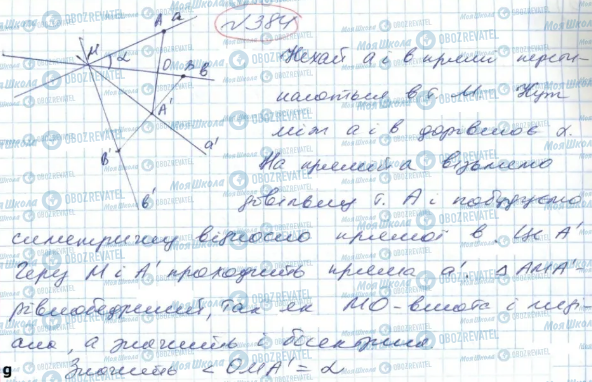 № 384
A a
M α
O B b
A'
a'
B'
b'
Нехай a і b прямі перети-
наються в т. M. Кут
між a і b дорівнює α.
На прямій a візьмемо
довільну т. A і побудуємо
симетричну відносно прямої b. Це A'
Через M і A' проходить пряма a'. △ AMA'-
рівнобедрений, так як MO - висота і меді-
ана, а значить і бісектриса.
Значить < OMA' = α